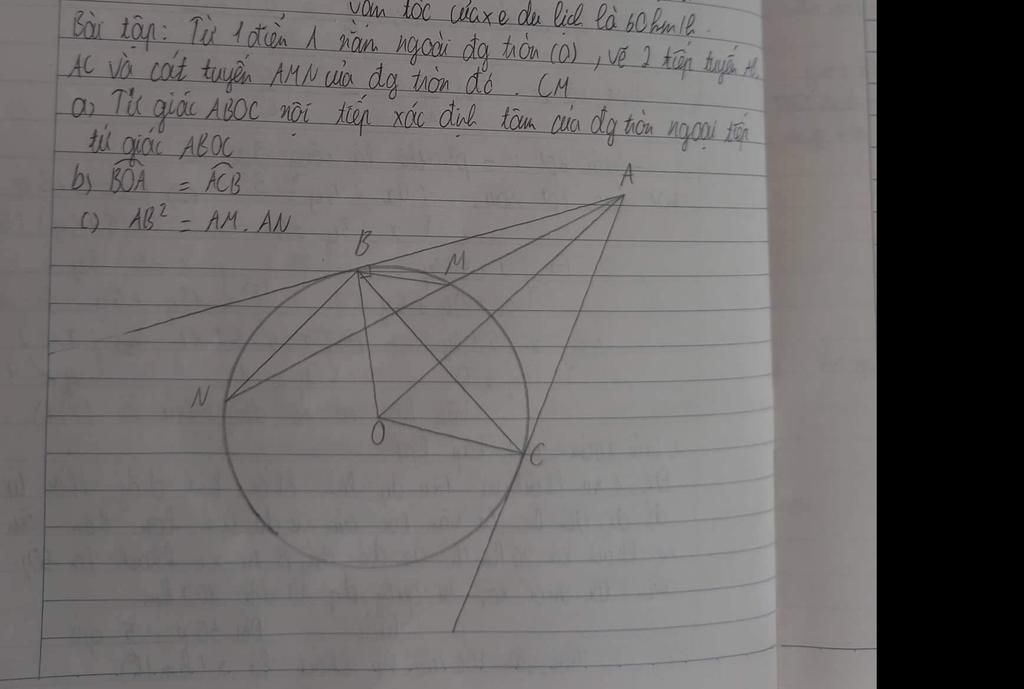 vậm tốc củaxe du lịch là 60km/h.
Bài tập: Từ 1 điển A nằm ngoài đg tròn (O), vẽ 2 tiếp tuyến
AC và cát tuyến AMN của đg tròn đó. CM
a) Tứ giác ABOC nội tiếp xác định tâm của đg tròn ngoại tiếp
tứ giác ABOC
b) BOA = ACB
c) AB² = AM. AN
A
B
M
N
O
C